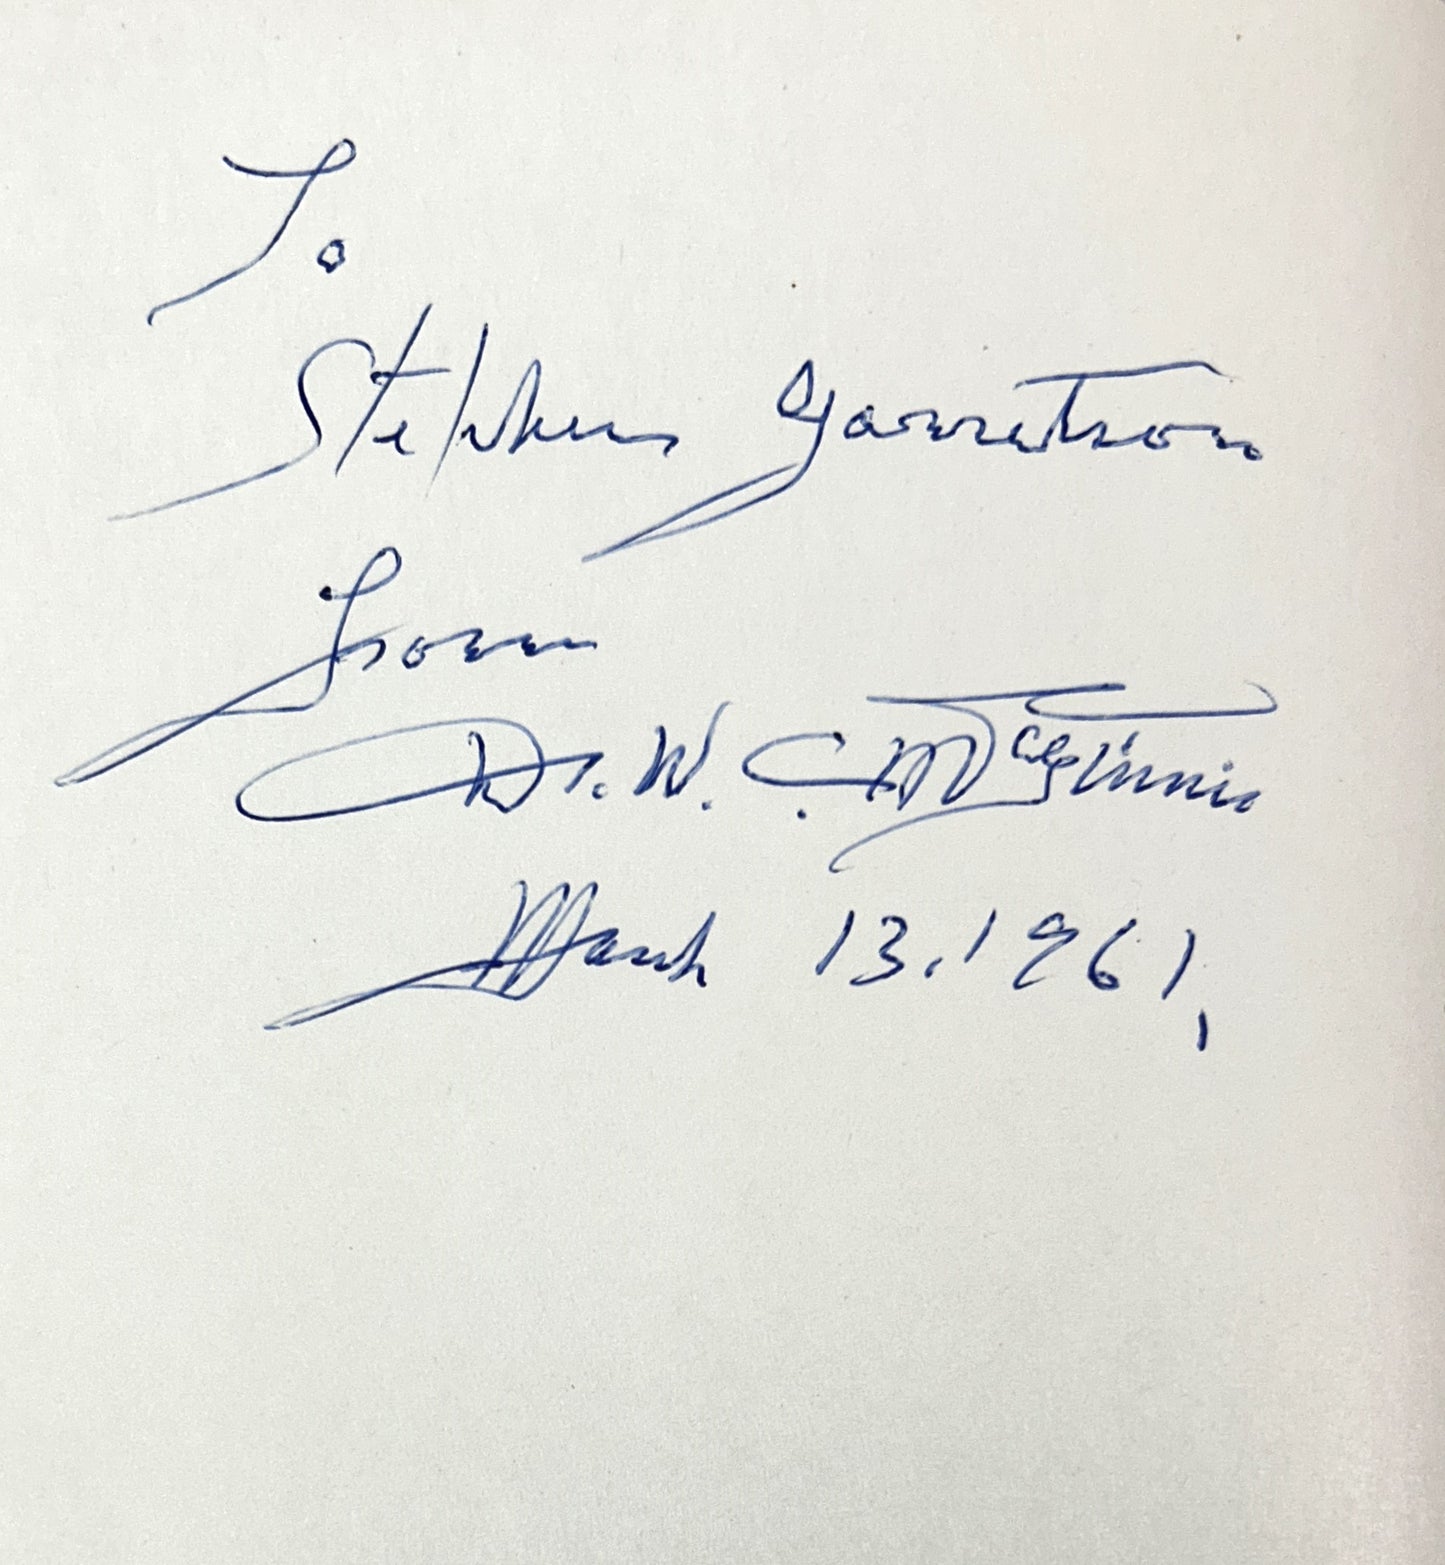 To
Stephen Garretson
From
Dr. W. C. McGinnis
March 13, 1961,